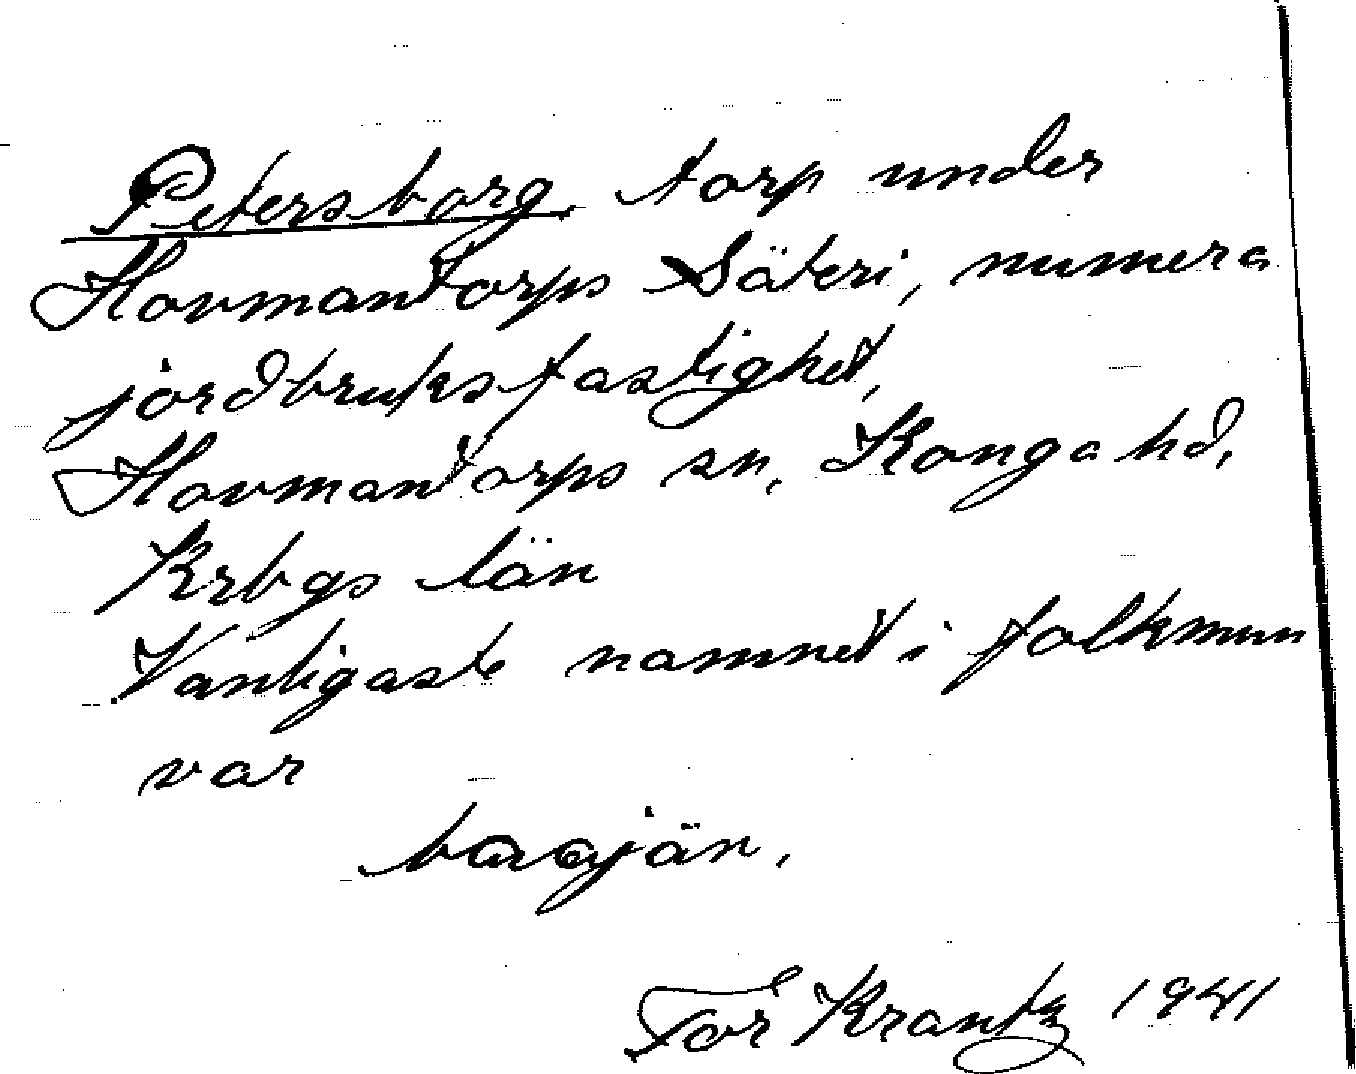 Petersborg, torp under
Hovmantorps Säteri, numera
jordbruksfastighet,
Hovmantorps sn, Konga hd,
Krbgs län
Vanligaste namnet i folkmun
var
Tor Krantz 1941